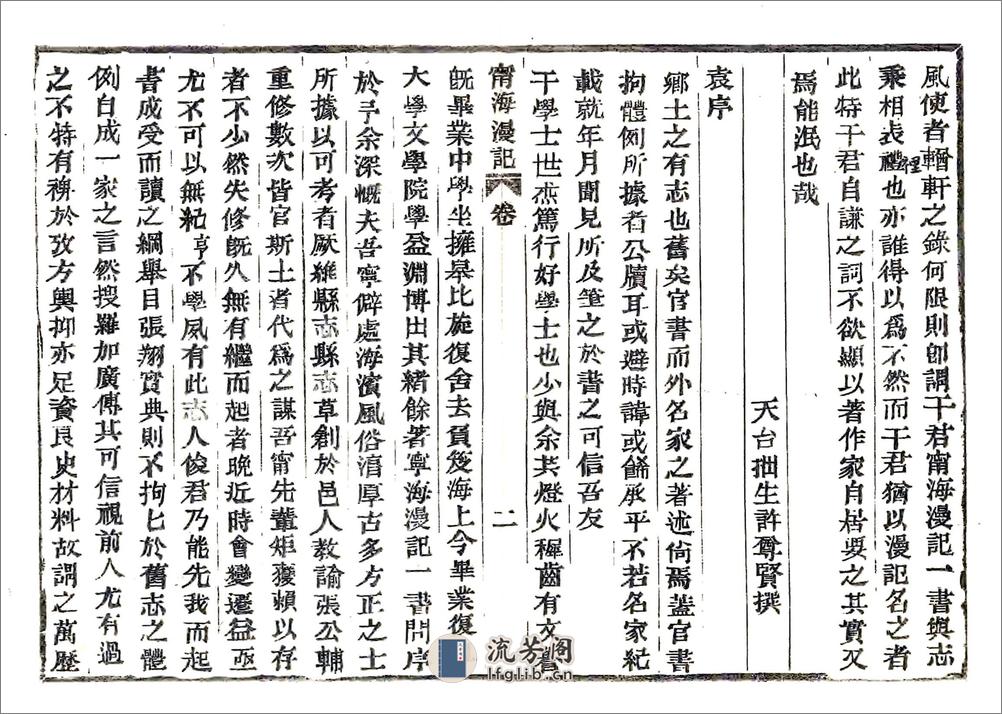 風使者輶軒之錄何限則卽謂干君甯海漫記一書與志
乘相表裡也亦誰得以爲不然而干君猶以漫記名之者
此特干君自謙之詞不欲顯以著作家自居要之其實又
焉能泯也哉
天台拙生許尊賢撰
袁序
鄉土之有志也舊矣官書而外名家之著述尙焉蓋官書
拘體例所據者公牘耳或避時諱或飾承平不若名家紀
載就年月聞見所及筆之於書之可信吾友
干學士世杰篤行好學士也少與余共燈火穉齒有文譽
甯海漫記 卷 二
旣畢業中學坐擁皋比施復舍去負笈海上今畢業復
大學文學院學益淵博出其緒餘著寧海漫記一書問序
於予余深慨夫吾寧僻處海濱風俗渞厚古多方正之士
所據以可考者厥維縣志縣志草創於邑人教諭張公輔
重修數次皆官斯土者代爲之謀吾甯先輩矩矱賴以存
者不少然失修旣久無有繼而起者晚近時會變遷益亟
尤不可以無紀亨不學夙有此志人俊君乃能先我而起
書成受而讀之綱舉目張翔實典則不拘匕於舊志之體
例自成一家之言然搜羅加廣傳其可信視前人尤有過
之不特有裨於攷方輿抑亦足資良史材料故謂之萬歷
流芳閣
lfglib.cn